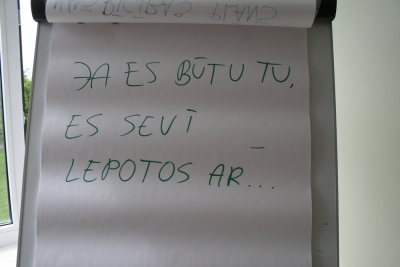 JA ES BŪTU TU,
ES SEVĪ
LEPOTOS AR...